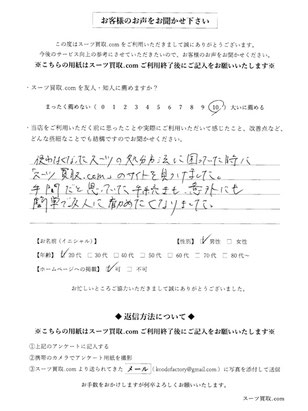 お客様のお声をお聞かせ下さい
この度はスーツ買取.comをご利用いただきまして誠にありがとうございます。
今後のサービス向上の参考にさせていただきたいので、お客様のお声をお聞かせください。
※こちらの用紙はスーツ買取.comご利用終了後にご記入をお願いいたします※
・スーツ買取.comを友人・知人に薦めますか？
まったく薦めない（ 0 1 2 3 4 5 6 7 8 9 10 ）大いに薦める
・当店をご利用いただく前に思ったことや実際にご利用いただいて感じたこと、改善点など、
どんな些細なことでも結構ですのでお聞かせください。
使わなくなったスーツの処分方法に困ってた時に
「スーツ買取.com」のサイトを見つけました。
手間だと思っていた手続きも意外にも
簡単で友人に勧めたくなりました。
【お名前（イニシャル）】 【性別】 ☑ 男性 □ 女性
【年齢】 ☑ 20代 □ 30代 □ 40代 □ 50代 □ 60代 □ 70代 □ 80代～
【ホームページへの掲載】 ☑ 可 □ 不可
お忙しいところご協力いただきまして誠にありがとうございました。
◆ 返信方法について ◆
※こちらの用紙はスーツ買取.comご利用終了後にご記入をお願いいたします※
①上記のアンケートに記入する
②携帯のカメラでアンケート用紙を撮影
③スーツ買取.comより送られてきた メール に写真を添付して送信
お手数をおかけしますが何卒よろしくお願いいたします。
スーツ買取.com